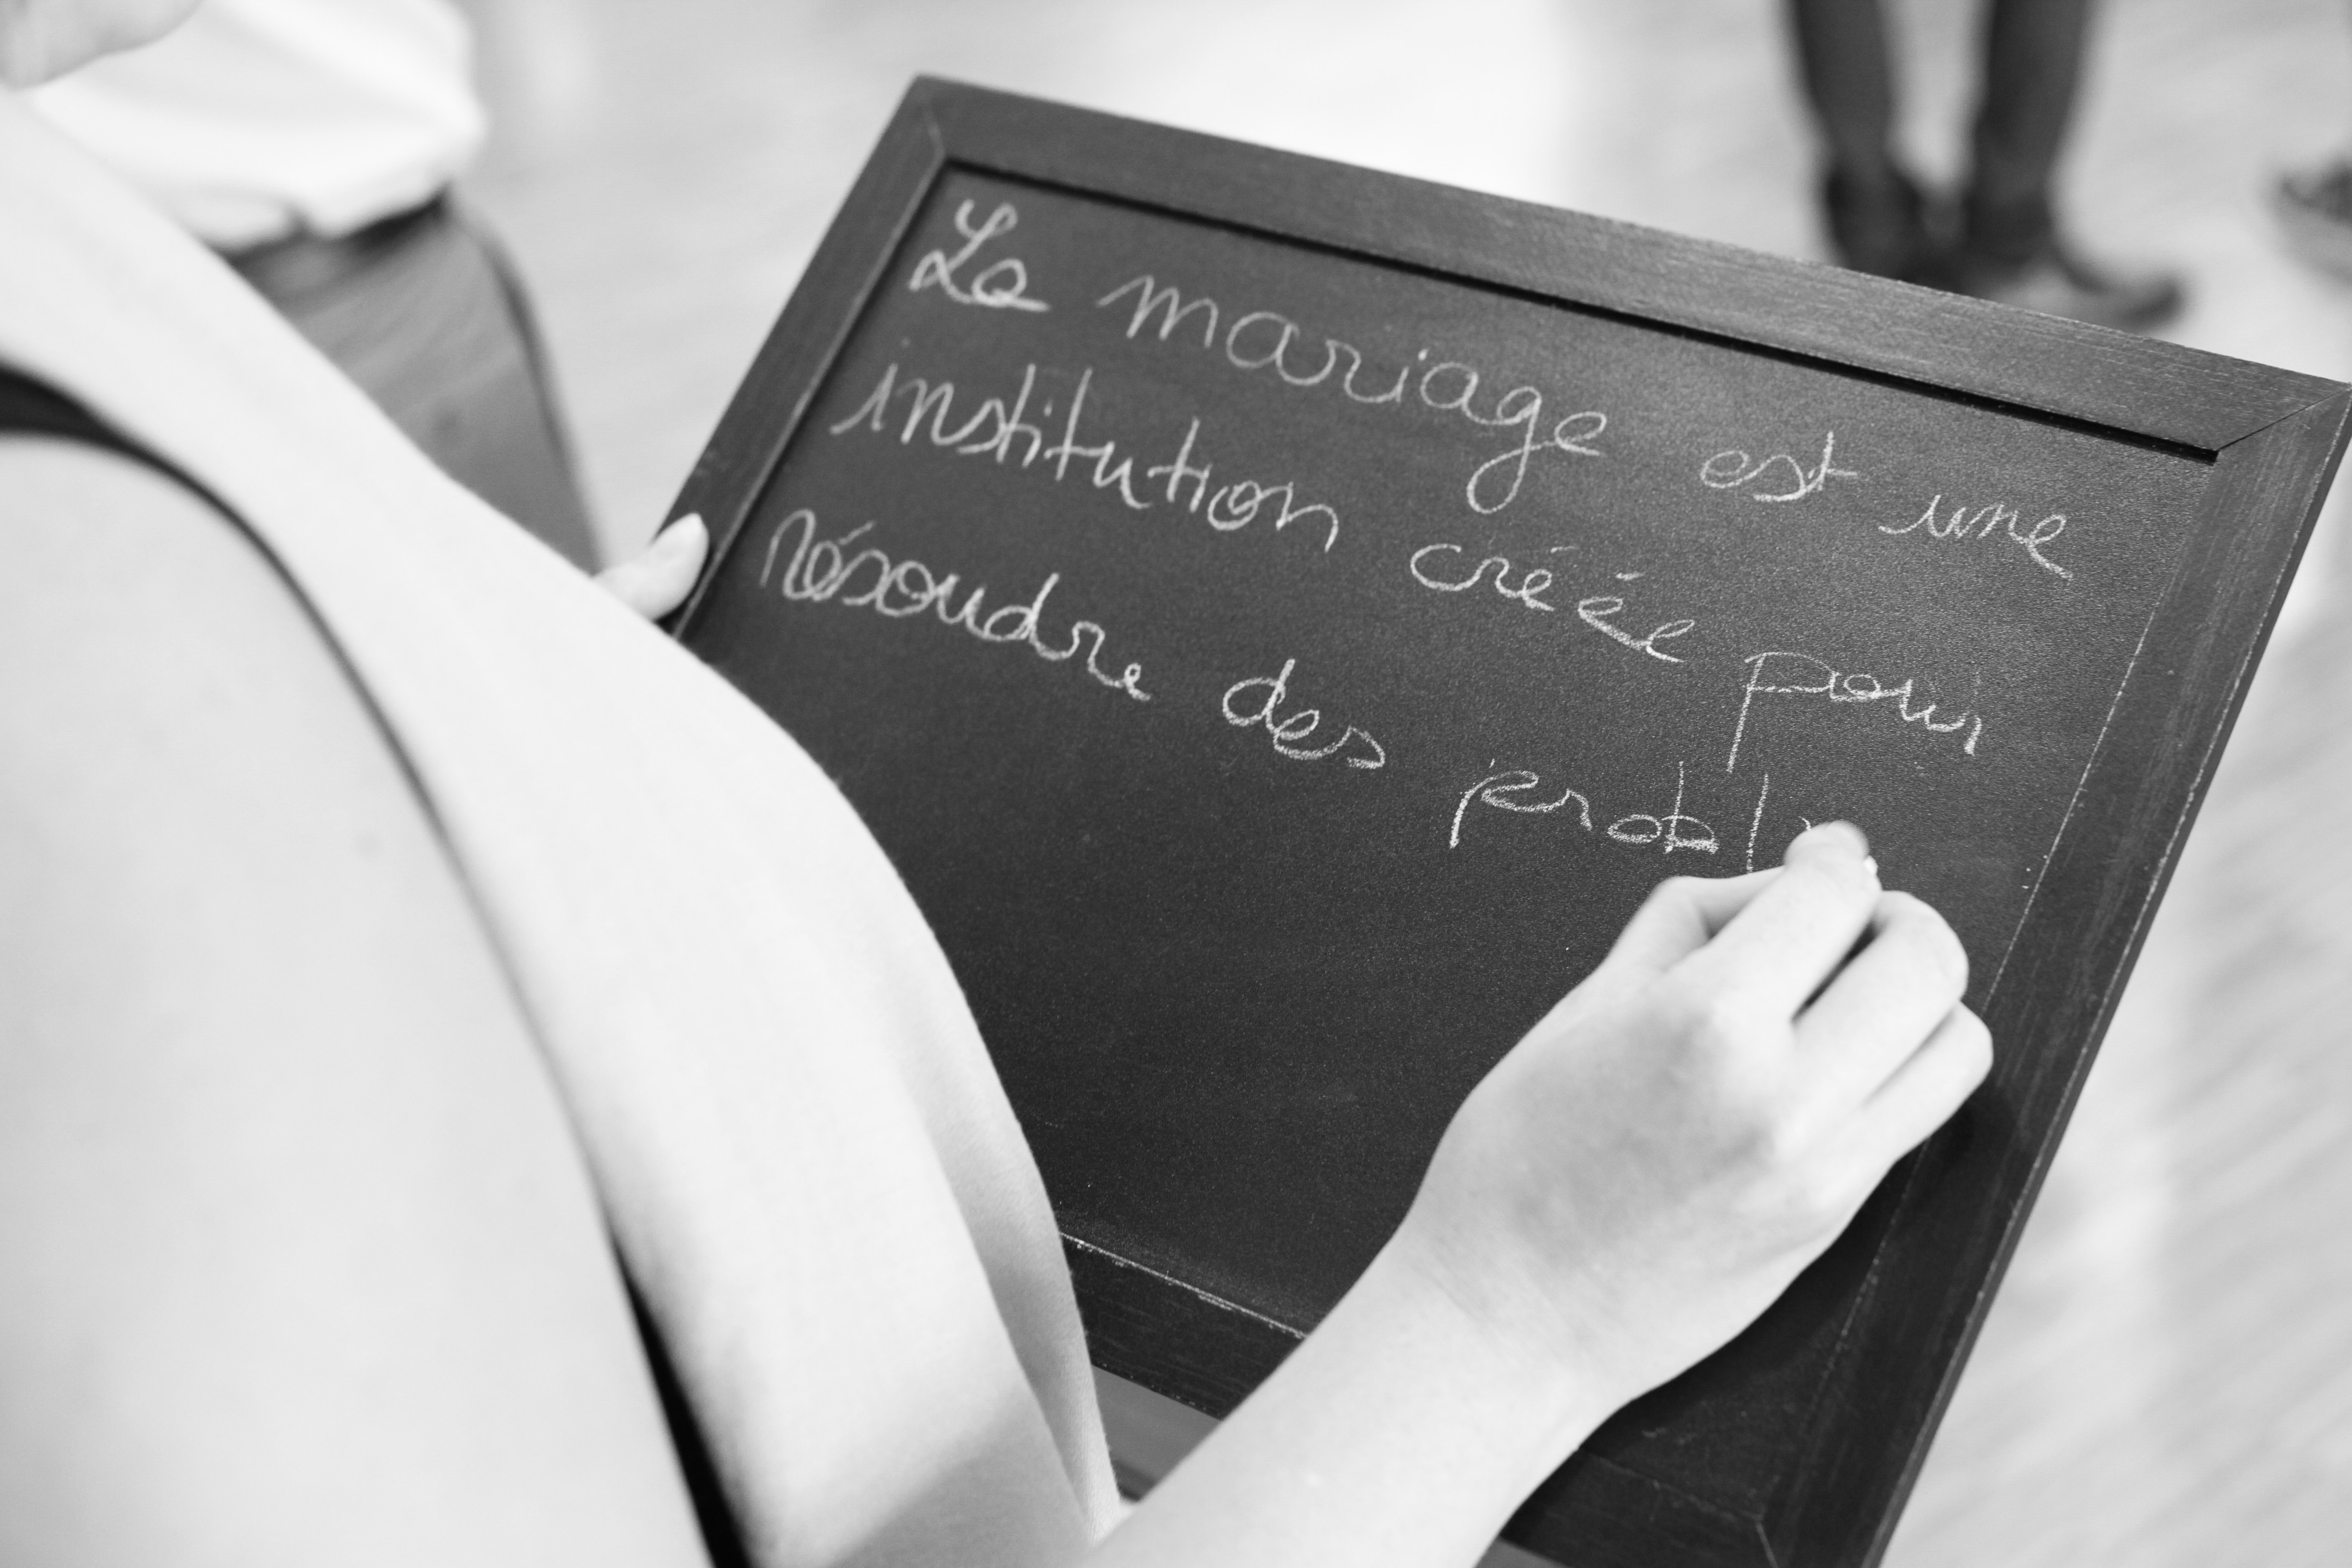 Le mariage est une
institution créée pour
résoudre des probl